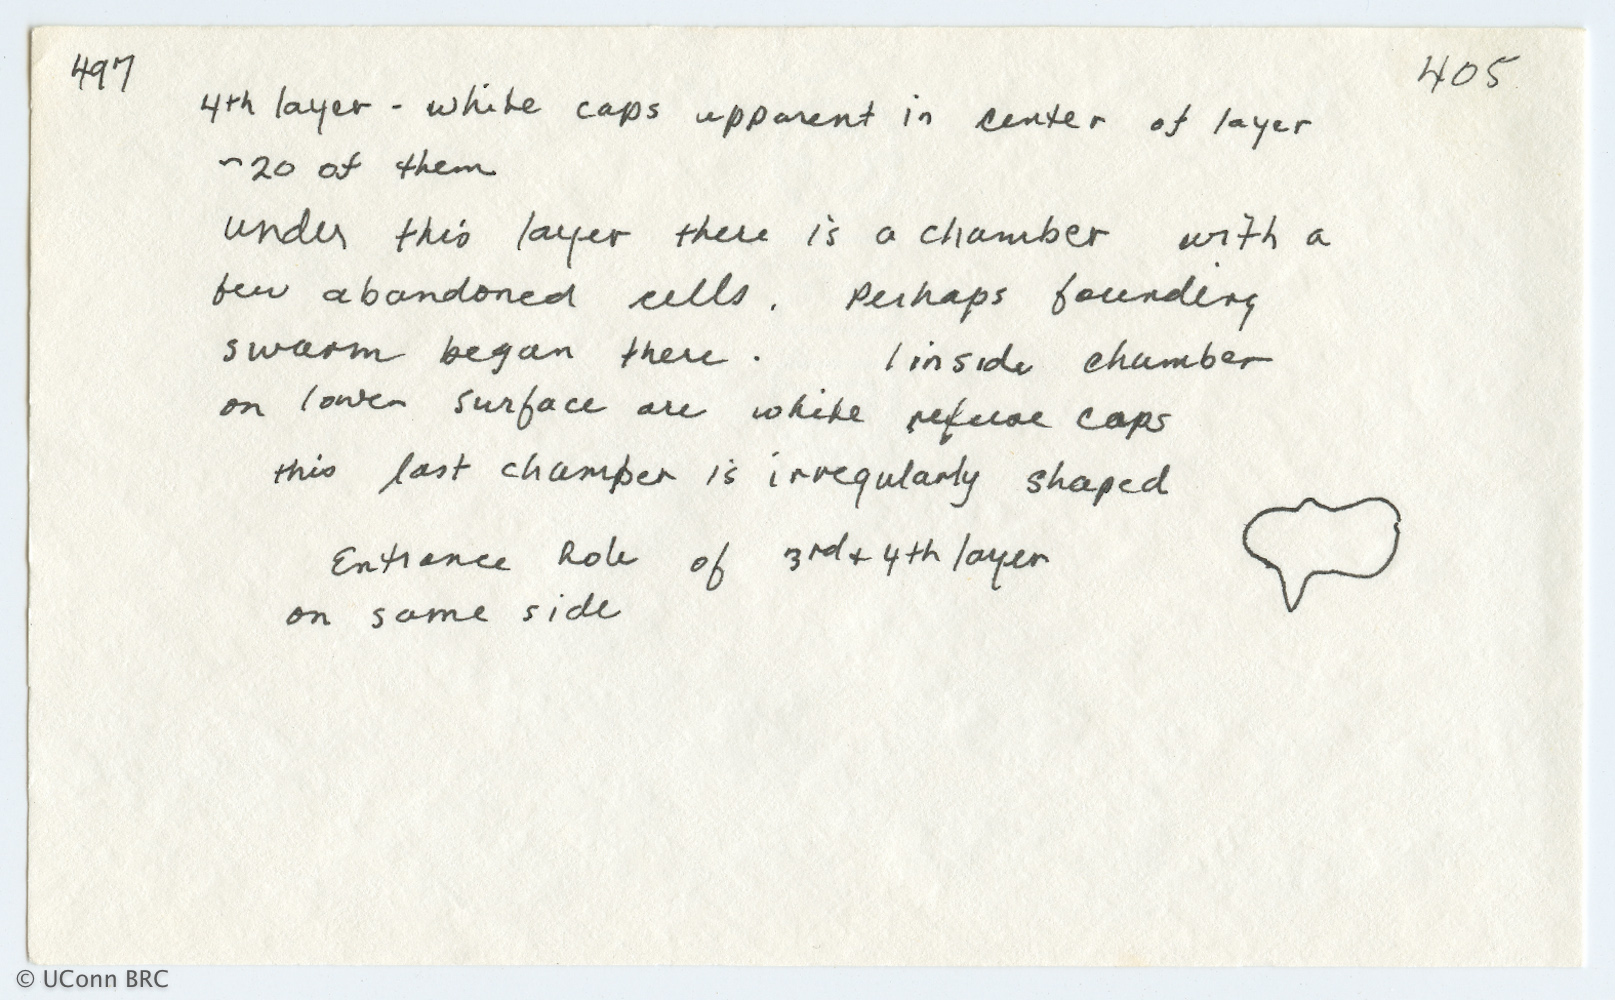 497
405
4th layer - white caps apparent in center of layer
~20 of them
under this layer there is a chamber with a
few abandoned cells. Perhaps founding
swarm began there. inside chamber
on lower surface are white caps
this last chamber is irregularly shaped
Entrance hole of 3rd + 4th layer
on same side
© UConn BRC